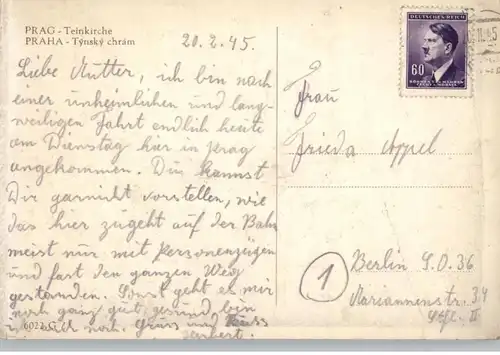 PRAG - Teinkirche
PRAHA - Týnský chrám
20.2.45.
Liebe Mutter, ich bin nach
einer unheimlichen und lang-
weiligen Fahrt endlich heute
am Dienstag hier in Prag
angekommen. Du kannst
Dir garnicht vorstellen, wie
das hier zugeht auf der Bahn
meist nur mit Personenzügen
und fast den ganzen Weg
gestanden. Sonst geht es mir
noch ganz gut, gesund bin
ich auch noch. Gruss und Kuss
6022 G
DEUTSCHES REICH
60
BÖHMEN U. MÄHREN
ČECHY A MORAVA
Frau
Frieda Appel
1
Berlin S.O. 36
Mariannenstr. 34
Stfl. II